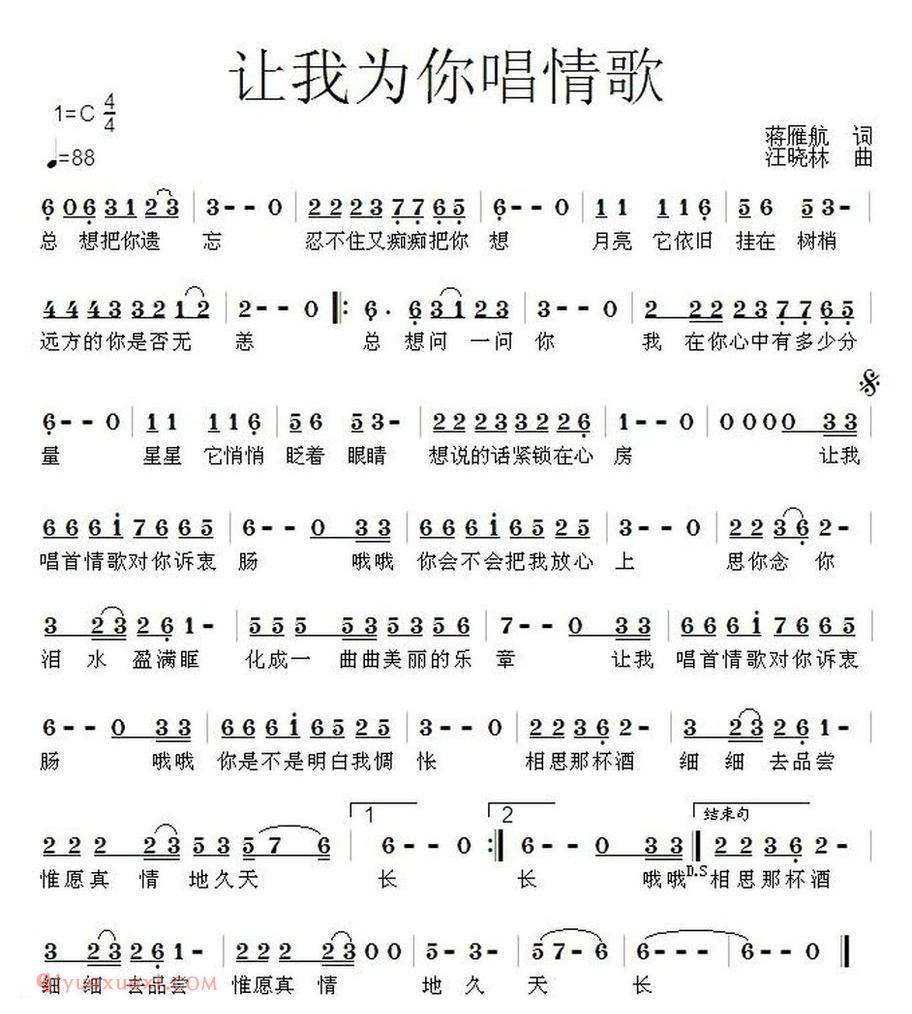 让我为你唱情歌
1=C 4/4
♩=88
蒋雁航 词
汪晓林 曲
6 0 6 3 1 2 3 | 3 - - 0 | 2 2 2 3 7 7 6 5 | 6 - - 0 | 1 1 1 1 6 | 5 6 5 3 - |
总 想把你遗 忘 忍不住又痴痴把你 想 月亮 它依旧 挂在 树梢
4 4 4 3 3 2 1 2 | 2 - - 0 |: 6 . 6 3 1 2 3 | 3 - - 0 | 2 2 2 2 3 7 7 6 5 |
远方的你是否无 恙 总 想问 一问 你 我 在你心中有多少分
6 - - 0 | 1 1 1 1 6 | 5 6 5 3 - | 2 2 2 3 3 2 2 6 | 1 - - 0 | 0 0 0 0 3 3 |
量 星星 它悄悄 眨着 眼睛 想说的话紧锁在心 房 让我
6 6 6 i 7 6 6 5 | 6 - - 0 3 3 | 6 6 6 i 6 5 2 5 | 3 - - 0 | 2 2 3 6 2 - |
唱首情歌对你诉衷 肠 哦哦 你会不会把我放心 上 思你念 你
3 2 3 2 6 1 - | 5 5 5 5 3 5 3 5 6 | 7 - - 0 3 3 | 6 6 6 i 7 6 6 5 |
泪 水 盈满眶 化成一 曲曲美丽的乐 章 让我 唱首情歌对你诉衷
6 - - 0 3 3 | 6 6 6 i 6 5 2 5 | 3 - - 0 | 2 2 3 6 2 - | 3 2 3 2 6 1 - |
肠 哦哦 你是不是明白我惆 怅 相思那杯酒 细 细 去品尝
1 2 结束句
2 2 2 2 3 5 3 5 7 6 | 6 - - 0 :| 6 - - 0 3 3 | 2 2 3 6 2 - |
惟愿真 情 地久天 长 长 哦哦 D.S 相思那杯酒
3 2 3 2 6 1 - | 2 2 2 2 3 0 0 | 5 - 3 - | 5 7 - 6 | 6 - - - | 6 - - 0 |
细 细 去品尝 惟愿真 情 地 久 天 长